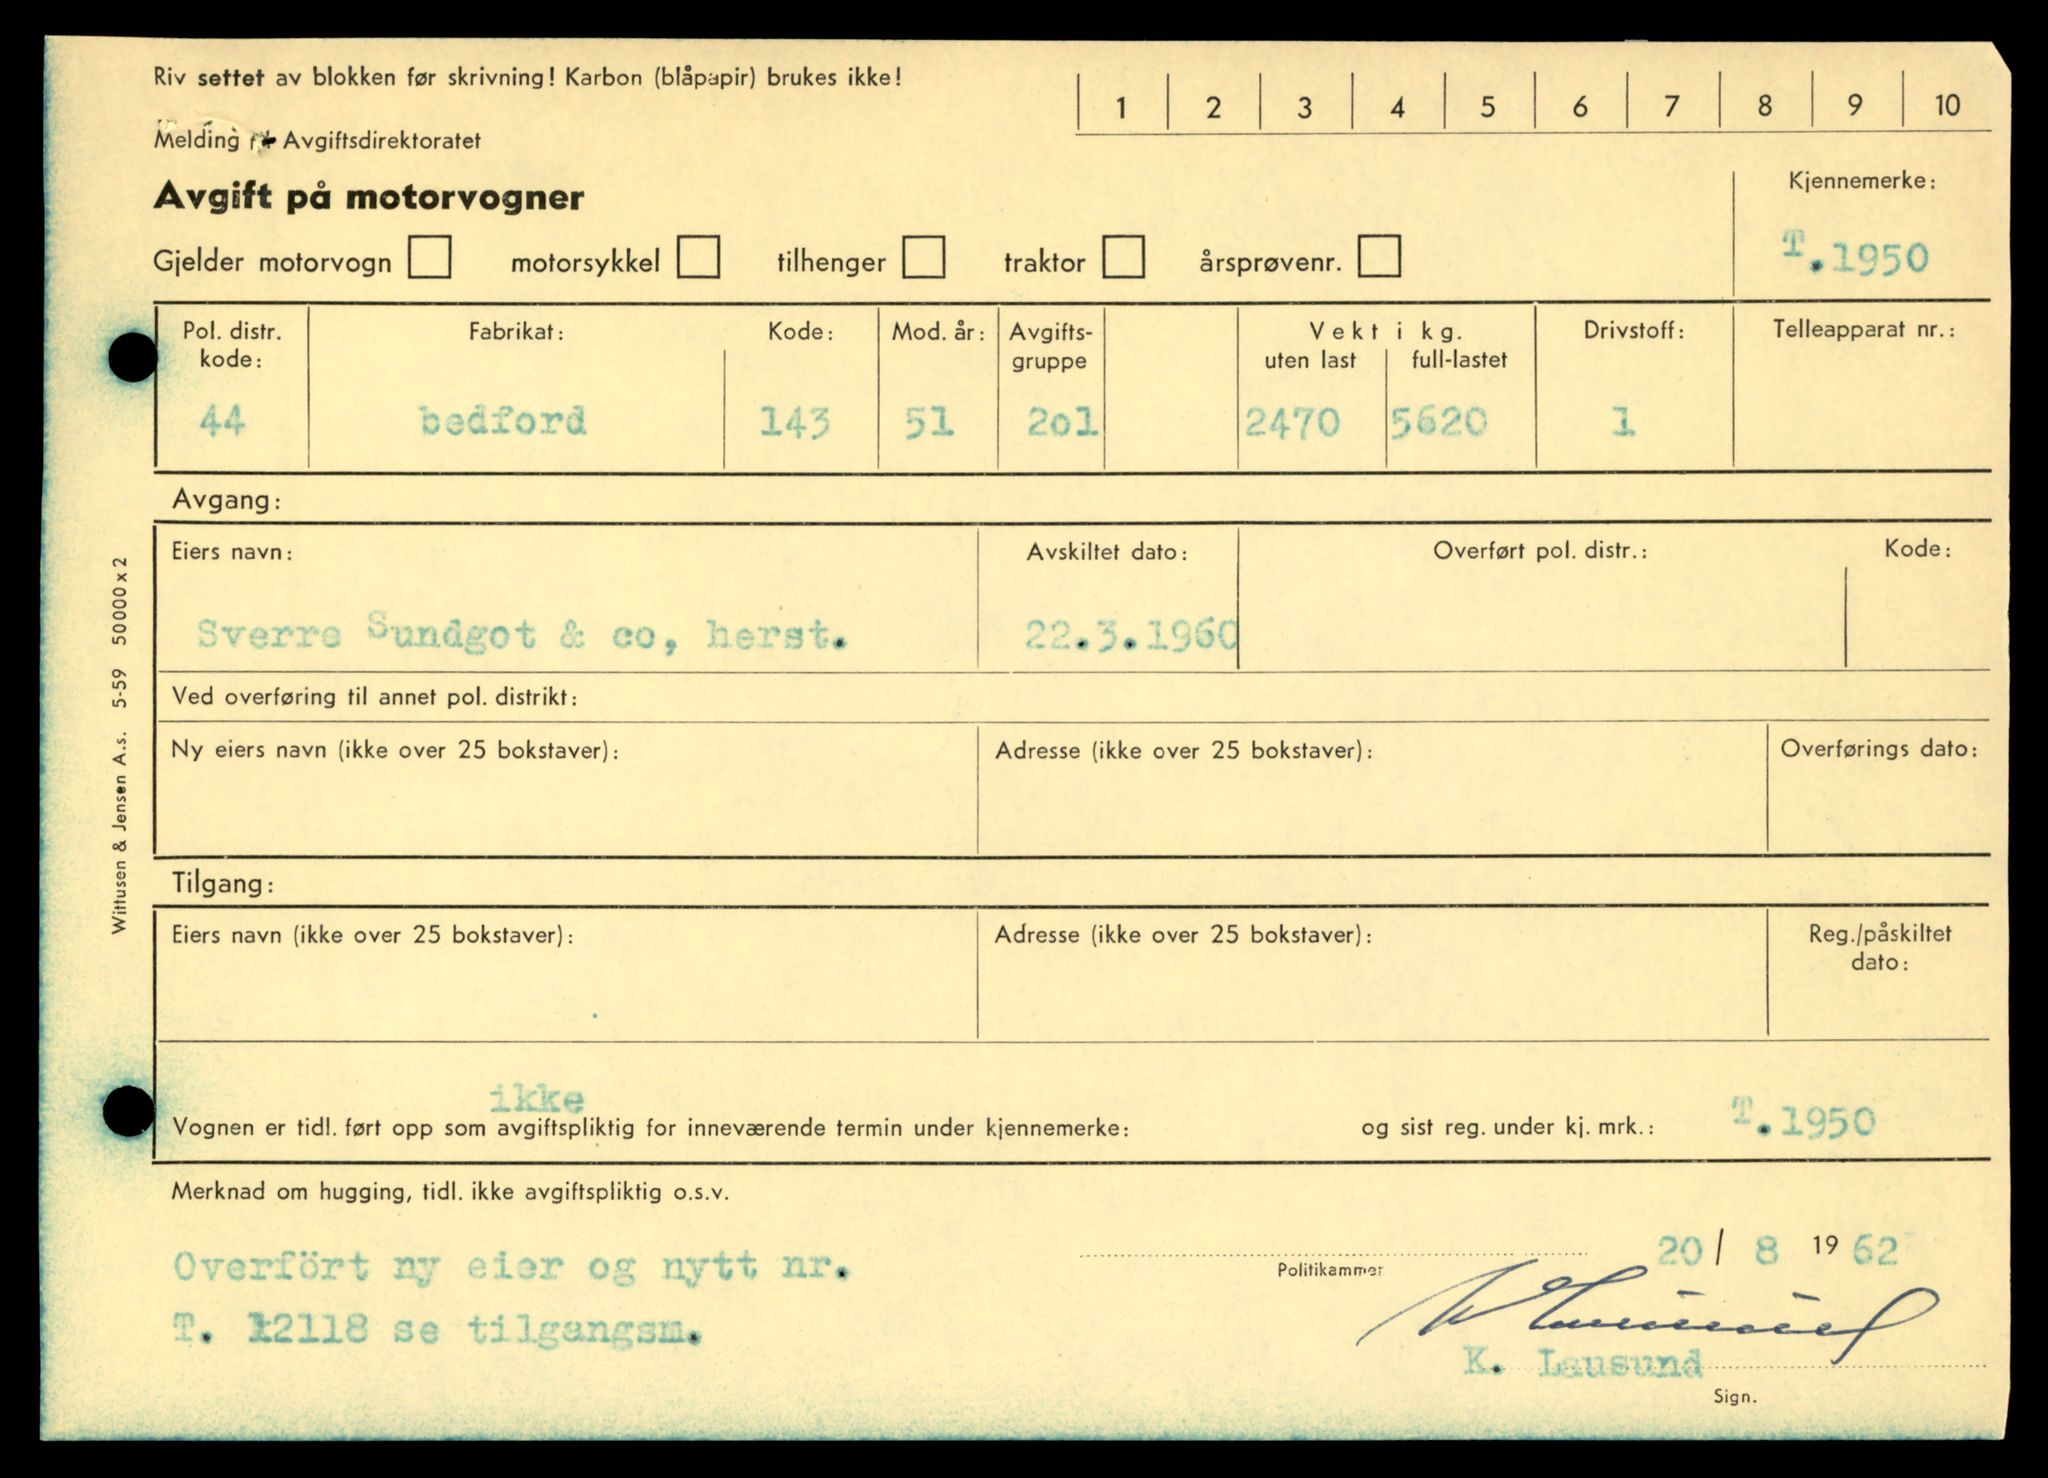 Riv settet av blokken før skrivning! Karbon (blåpapir) brukes ikke!
1 2 3 4 5 6 7 8 9 10
Melding Avgiftsdirektoratet
Avgift på motorvogner
Kjennemerke:
T.1950
Gjelder motorvogn motorsykkel tilhenger traktor årsprøvenr.
Pol. distr. kode: Fabrikat: Kode: Mod. år: Avgifts-gruppe Vekt i kg. uten last full-lastet Drivstoff: Telleapparat nr.:
44 bedford 143 51 2o1 2470 5620 1
Avgang:
Eiers navn: Avskiltet dato: Overført pol. distr.: Kode:
Sverre Sundgot & co, herst. 22.3.1960
Ved overføring til annet pol. distrikt:
Ny eiers navn (ikke over 25 bokstaver): Adresse (ikke over 25 bokstaver): Overførings dato:
Tilgang:
Eiers navn (ikke over 25 bokstaver): Adresse (ikke over 25 bokstaver): Reg./påskiltet dato:
ikke
Vognen er tidl. ført opp som avgiftspliktig for inneværende termin under kjennemerke: og sist reg. under kj. mrk.: T.1950
Merknad om hugging, tidl. ikke avgiftspliktig o.s.v.
Overfört ny eier og nytt nr.
T. 12118 se tilgangsm.
20/ 8 1962
Politikammer
K. Lausund
Sign.
Wittusen & Jensen A.s. 5-59 50000x2